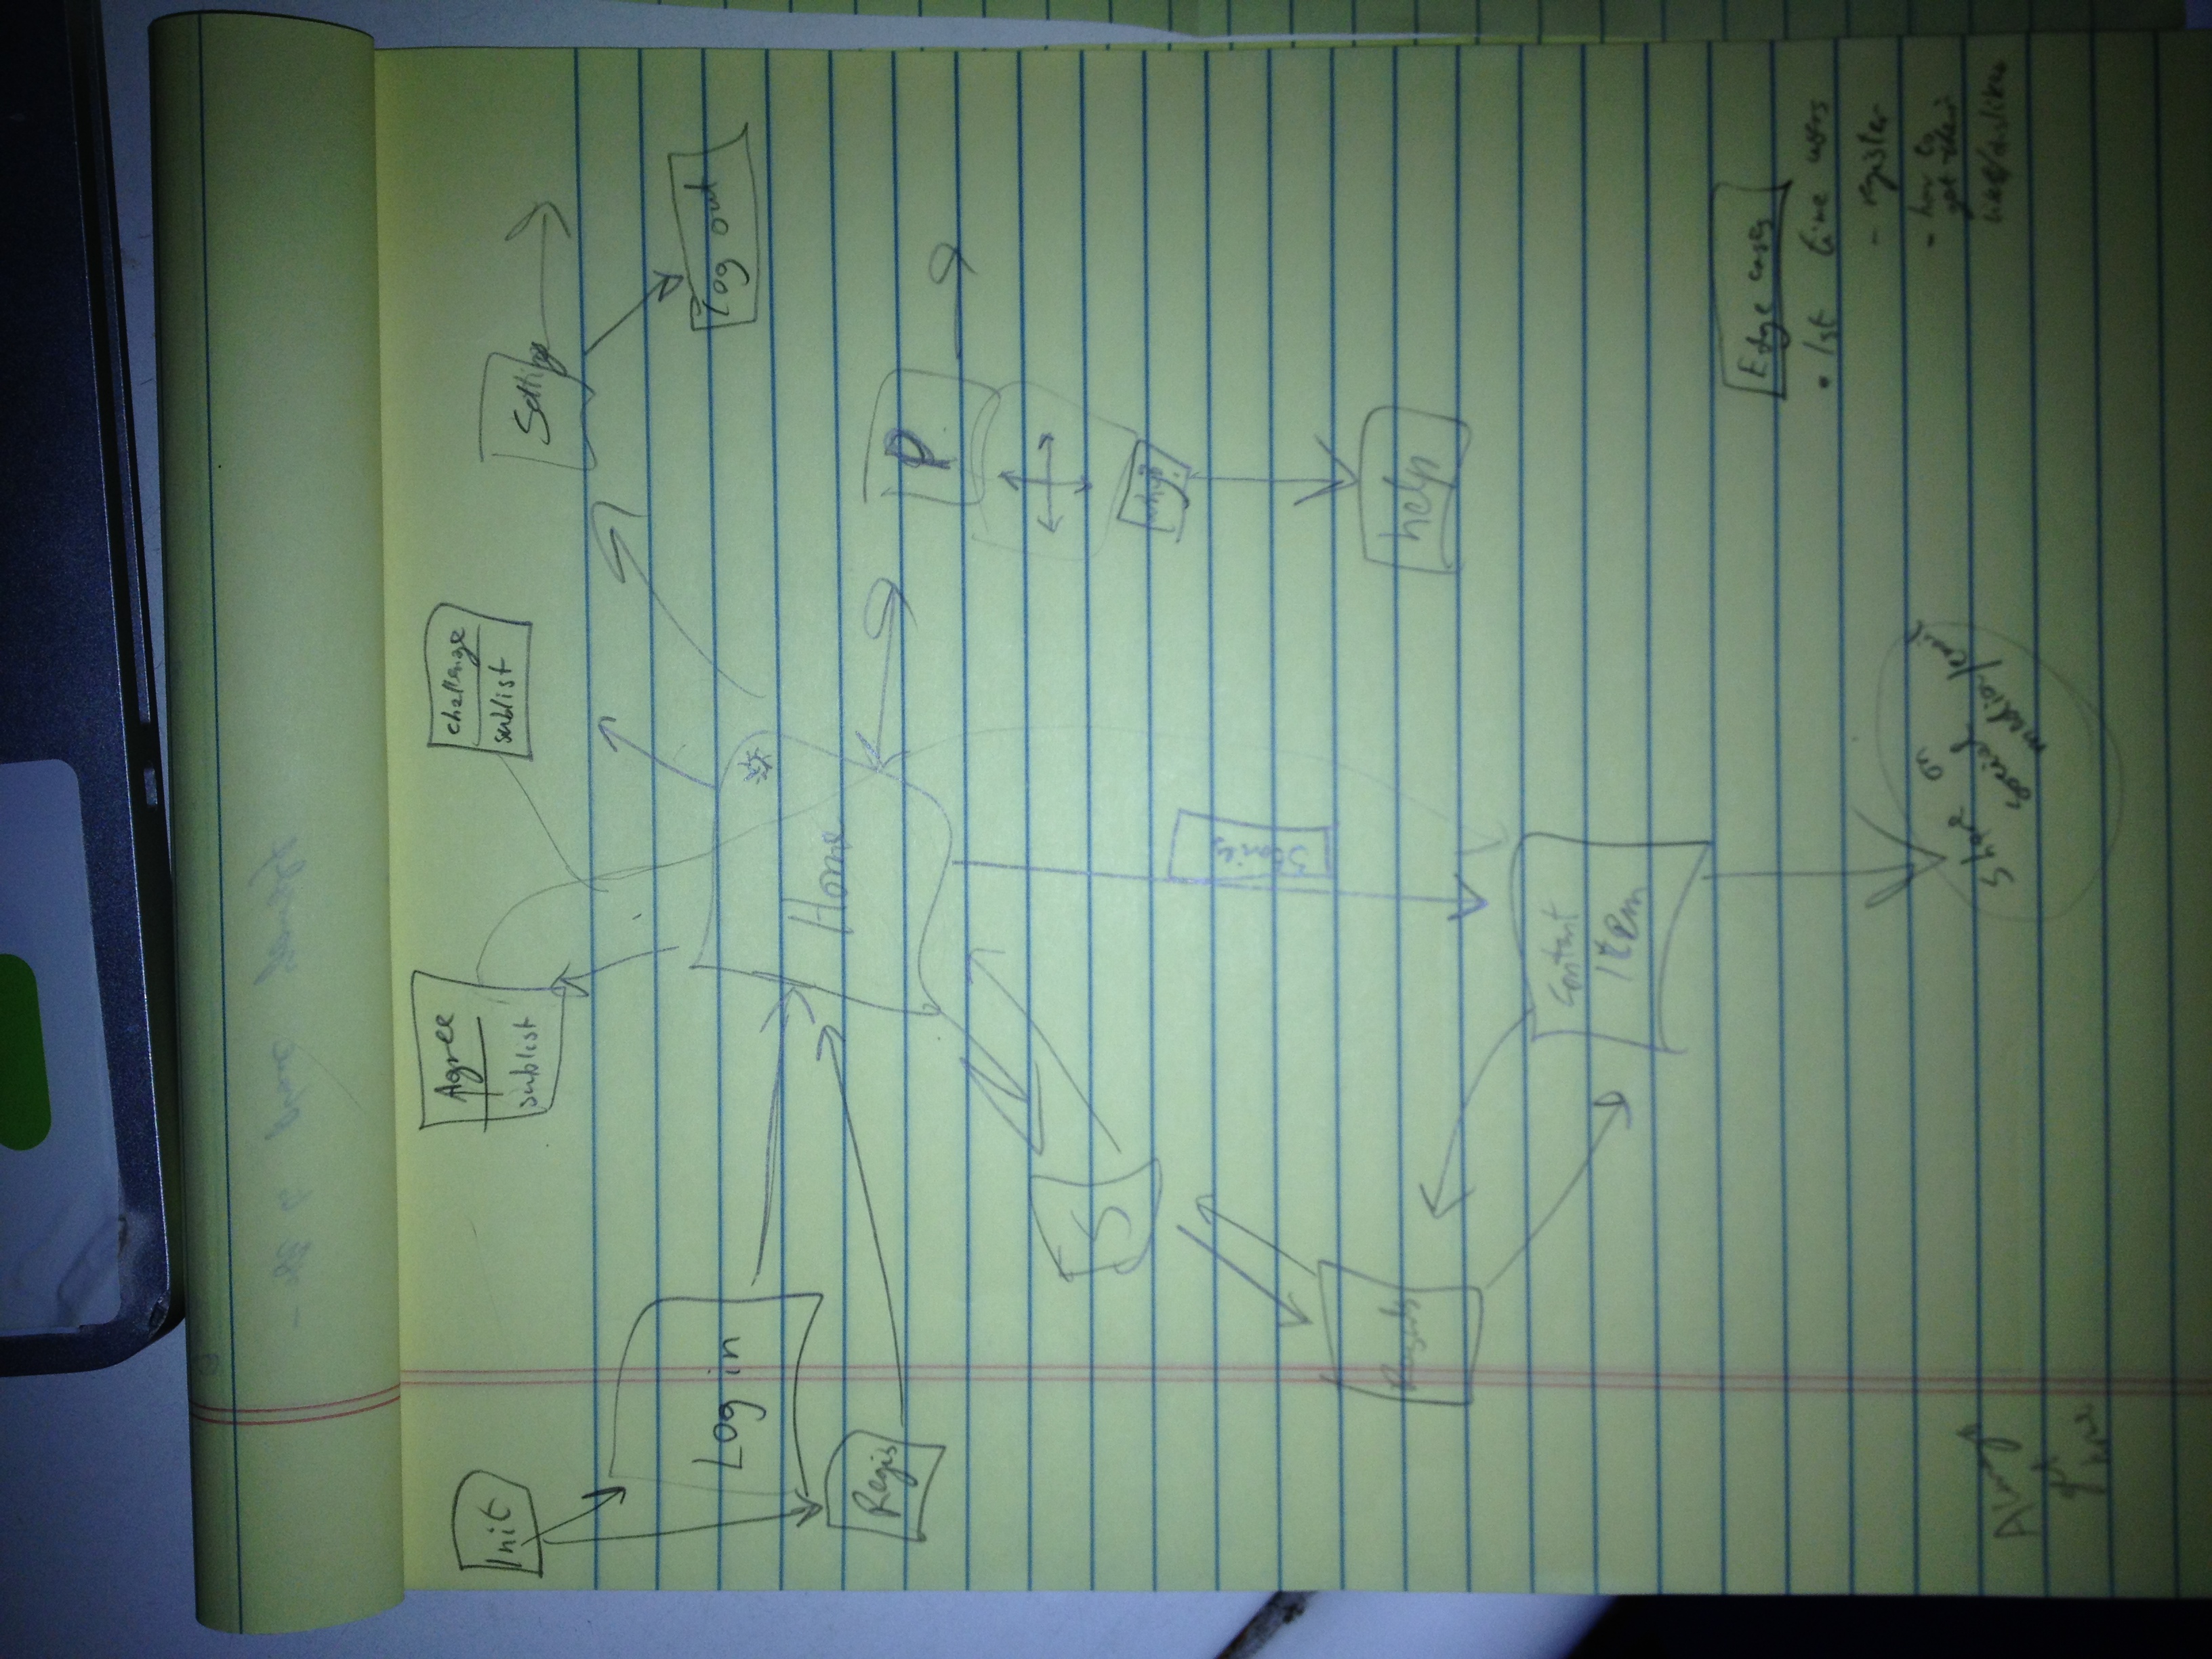 Init
Agree
sublist
challenge
sublist
Setting
Log in
Log out
Home
Regis
P
S
why?
Stories
Results
help
Content
Item
Edge cases
• 1st time users
- register
- how to
get their
likes/dislikes
Share on
social
media/email
Always
get